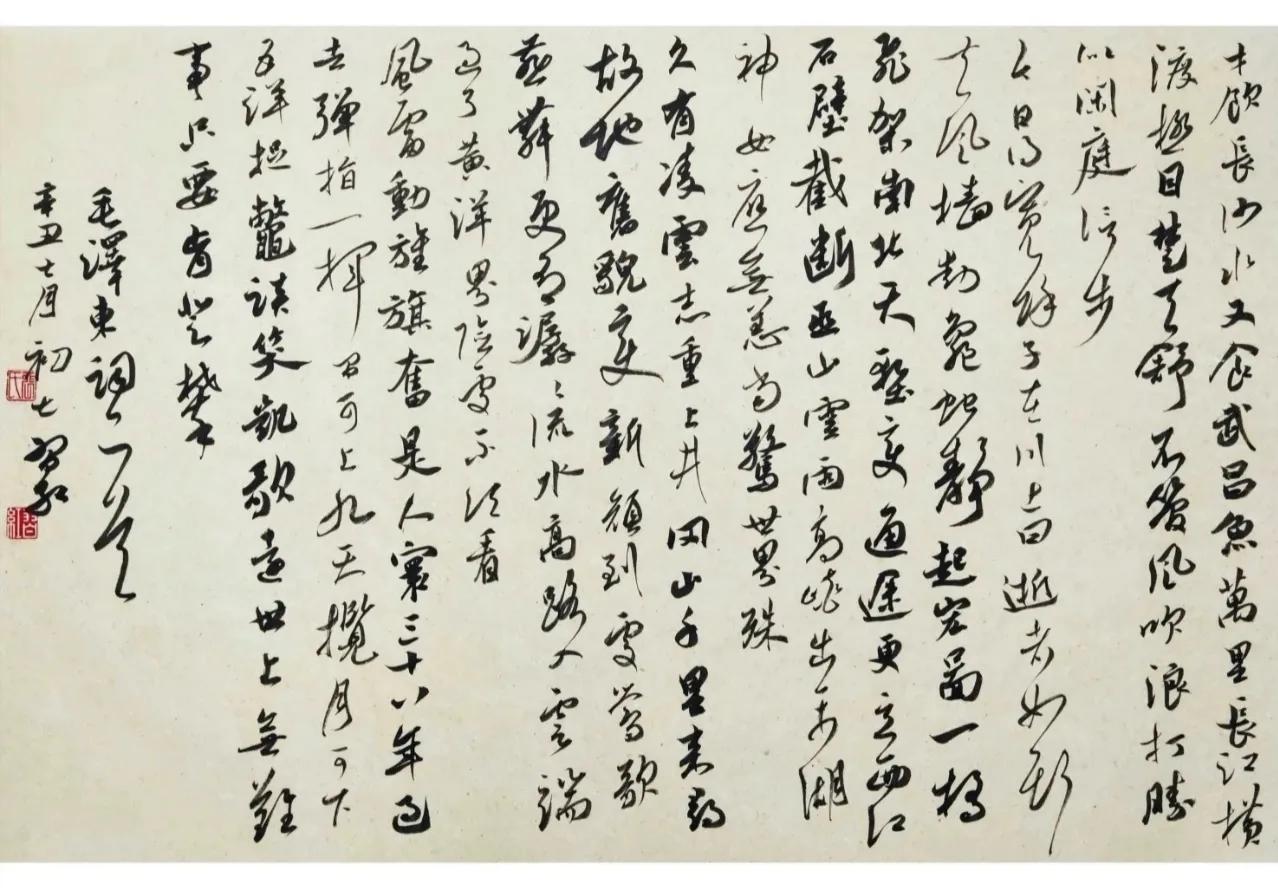 才飲長沙水又食武昌魚萬里長江橫
渡極目楚天舒不管風吹浪打勝
似閑庭信步
今日得寬餘子在川上曰逝者如斯
夫風檣動龜蛇靜起宏圖一橋
飛架南北天塹變通途更立西江
石壁截斷巫山雲雨高峽出平湖
神女應無恙當驚世界殊
久有凌雲志重上井岡山千里來尋
故地舊貌變新顏到處鶯歌
燕舞更有潺々流水高路入雲端
過了黃洋界險處不須看
風雷動旌旗奮是人寰三十八年過
去彈指一揮間可上九天攬月可下
五洋捉鱉談笑凱歌還世上無難
事只要肯登攀
毛澤東詞二首
辛丑七月初七